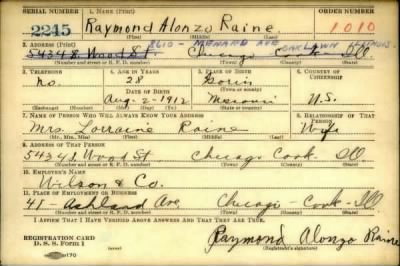 SERIAL NUMBER 1. NAME (Print) ORDER NUMBER
2245 Raymond Alonzo Raine 1010
(First) (Middle) (Last)
8610 - MENARD AVE OAKLAWN ILLINOIS
2. ADDRESS (Print)
5434 S Wood St. Chicago Cook Ill
(Number and street or R. F. D. number) (Town) (County) (State)
3. TELEPHONE 4. AGE IN YEARS 5. PLACE OF BIRTH 6. COUNTRY OF CITIZENSHIP
no. 28 Gorin
DATE OF BIRTH (Town or county)
Aug. 2-1912 Missouri U.S.
(Exchange) (Number) (Mo.) (Day) (Yr.) (State or country)
7. NAME OF PERSON WHO WILL ALWAYS KNOW YOUR ADDRESS 8. RELATIONSHIP OF THAT PERSON
Mrs. Lorraine Raine Wife
(Mr., Mrs., Miss) (First) (Middle) (Last)
9. ADDRESS OF THAT PERSON
5434 S Wood St Chicago Cook. Ill
(Number and street or R. F. D. number) (Town) (County) (State)
10. EMPLOYER'S NAME
Wilson & Co.
11. PLACE OF EMPLOYMENT OR BUSINESS
41 - Ashland Ave Chicago - Cook - Ill
(Number and street or R. F. D. number) (Town) (County) (State)
I AFFIRM THAT I HAVE VERIFIED ABOVE ANSWERS AND THAT THEY ARE TRUE.
REGISTRATION CARD
D. S. S. Form 1 Raymond Alonzo Raine
(Registrant's signature)